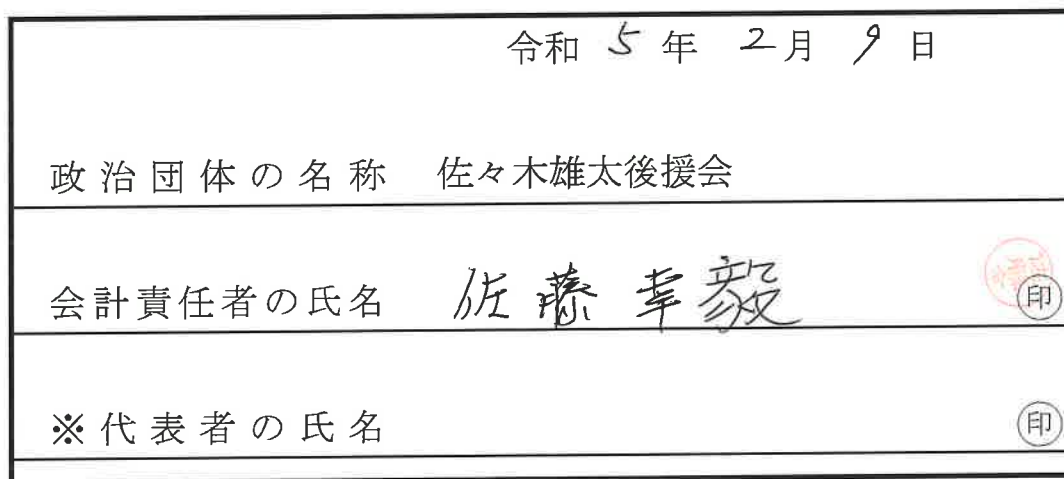 令和 5 年 2月 9 日
政治団体の名称 佐々木雄太後援会
会計責任者の氏名 佐藤幸毅 印
※代表者の氏名 印